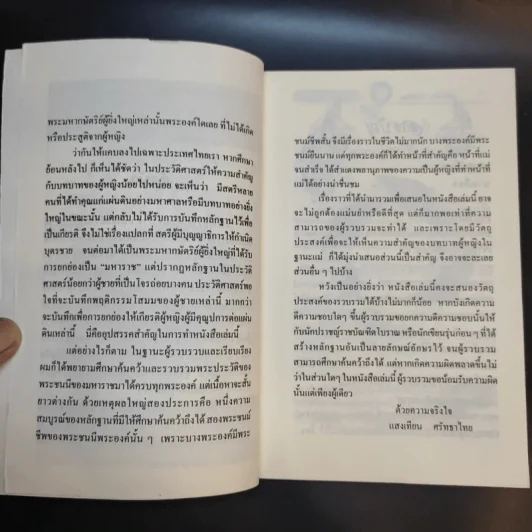 พระมหากษัตริย์ผู้ยิ่งใหญ่เหล่านั้นพระองค์ใดเลย ที่ไม่ได้เกิด
หรือประสูติจากผู้หญิง
ว่ากันให้แคบลงไปเฉพาะประเทศไทยเรา หากศึกษา
ย้อนหลังไป ก็เห็นได้ชัดว่า ในประวัติศาสตร์ให้ความสำคัญ
กับบทบาทของผู้หญิงน้อยไปหน่อย จะเห็นว่า มีสตรีหลาย
คนที่ได้ทำคุณแก่แผ่นดินอย่างมหาศาลหรือมีบทบาทอย่างยิ่ง
ใหญ่ในขณะนั้น แต่กลับไม่ได้รับการบันทึกหลักฐานไว้เพื่อ
เป็นเกียรติ จึงไม่ใช่เรื่องแปลกที่ สตรีผู้มีบุญญาธิการให้กำเนิด
บุตรชาย จนต่อมาได้เป็นพระมหากษัตริย์ผู้ยิ่งใหญ่ที่ได้รับ
การยกย่องเป็น “มหาราช” แต่ปรากฏหลักฐานในประวัติ
ศาสตร์น้อยกว่าผู้ชายที่เป็นโจรถ่อยบางคน ประวัติศาสตร์พอ
ใจที่จะบันทึกพฤติกรรมโสมมของผู้ชายเหล่านี้ มากกว่า
จะบันทึกเพื่อการยกย่องให้เกียรติผู้หญิงผู้มีคุณูปการต่อแผ่น
ดินเหล่านี้ นี่คืออุปสรรคสำคัญในการทำหนังสือเล่มนี้
แต่อย่างไรก็ตาม ในฐานะผู้รวบรวมและเรียบเรียง
ผมก็ได้พยายามศึกษาค้นคว้าและรวบรวมพระประวัติของ
พระชนนีของมหาราชมาได้ครบทุกพระองค์ แต่เนื้อหาจะสั้น
ยาวต่างกัน ด้วยเหตุผลใหญ่สองประการคือ หนึ่งความ
สมบูรณ์ของหลักฐานที่มีให้ศึกษาค้นคว้าได้ สองพระชนม์
ชีพของพระชนนีพระองค์นั้น ๆ เพราะบางพระองค์มีพระ
ชนม์ชีพสั้น จึงมีเรื่องราวในชีวิตไม่มากนัก บางพระองค์มีพระ
ชนม์ยืนนาน แต่ทุกพระองค์ก็ได้ทำหน้าที่สำคัญคือ หน้าที่แม่
จนสำเร็จ ได้สำแดงพลานุภาพของความเป็นผู้หญิงที่ทำหน้าที่
แม่ได้อย่างน่าชื่นชม
เรื่องราวที่ได้นำมารวมเพื่อเสนอในหนังสือเล่มนี้ อาจ
จะไม่ถูกต้องแม่นยำหรือดีที่สุด แต่ก็มากพอเท่าที่ความ
สามารถของผู้รวบรวมจะทำได้ และเพราะโดยมีวัตถุ
ประสงค์เพื่อจะให้เห็นความสำคัญของบทบาทผู้หญิงใน
ฐานะแม่ ก็ได้มุ่งนำเสนอส่วนนี้เป็นสำคัญ จึงอาจจะละเลย
ส่วนอื่น ๆ ไปบ้าง
หวังเป็นอย่างยิ่งว่า หนังสือเล่มนี้คงจะสนองวัตถุ
ประสงค์ของรวบรวมได้บ้างไม่มากก็น้อย หากบังเกิดความ
ดีความชอบใดๆ ขึ้นผู้รวบรวมขอยกความดีความชอบนั้นให้
กับนักปราชญ์ราชบัณฑิตโบราณ หรือนักเขียนรุ่นก่อน ๆ ที่ได้
สร้างหลักฐานอันเป็นลายลักษณ์อักษรไว้ จนผู้รวบรวม
สามารถศึกษาค้นคว้าได้ แต่หากเกิดความผิดพลาดขึ้นไม่
ว่าในส่วนใดๆ ในหนังสือเล่มนี้ ผู้รวบรวมขอน้อมรับความผิด
นั้นแต่เพียงผู้เดียว
ด้วยความจริงใจ
แสงเทียน ศรัทธาไทย